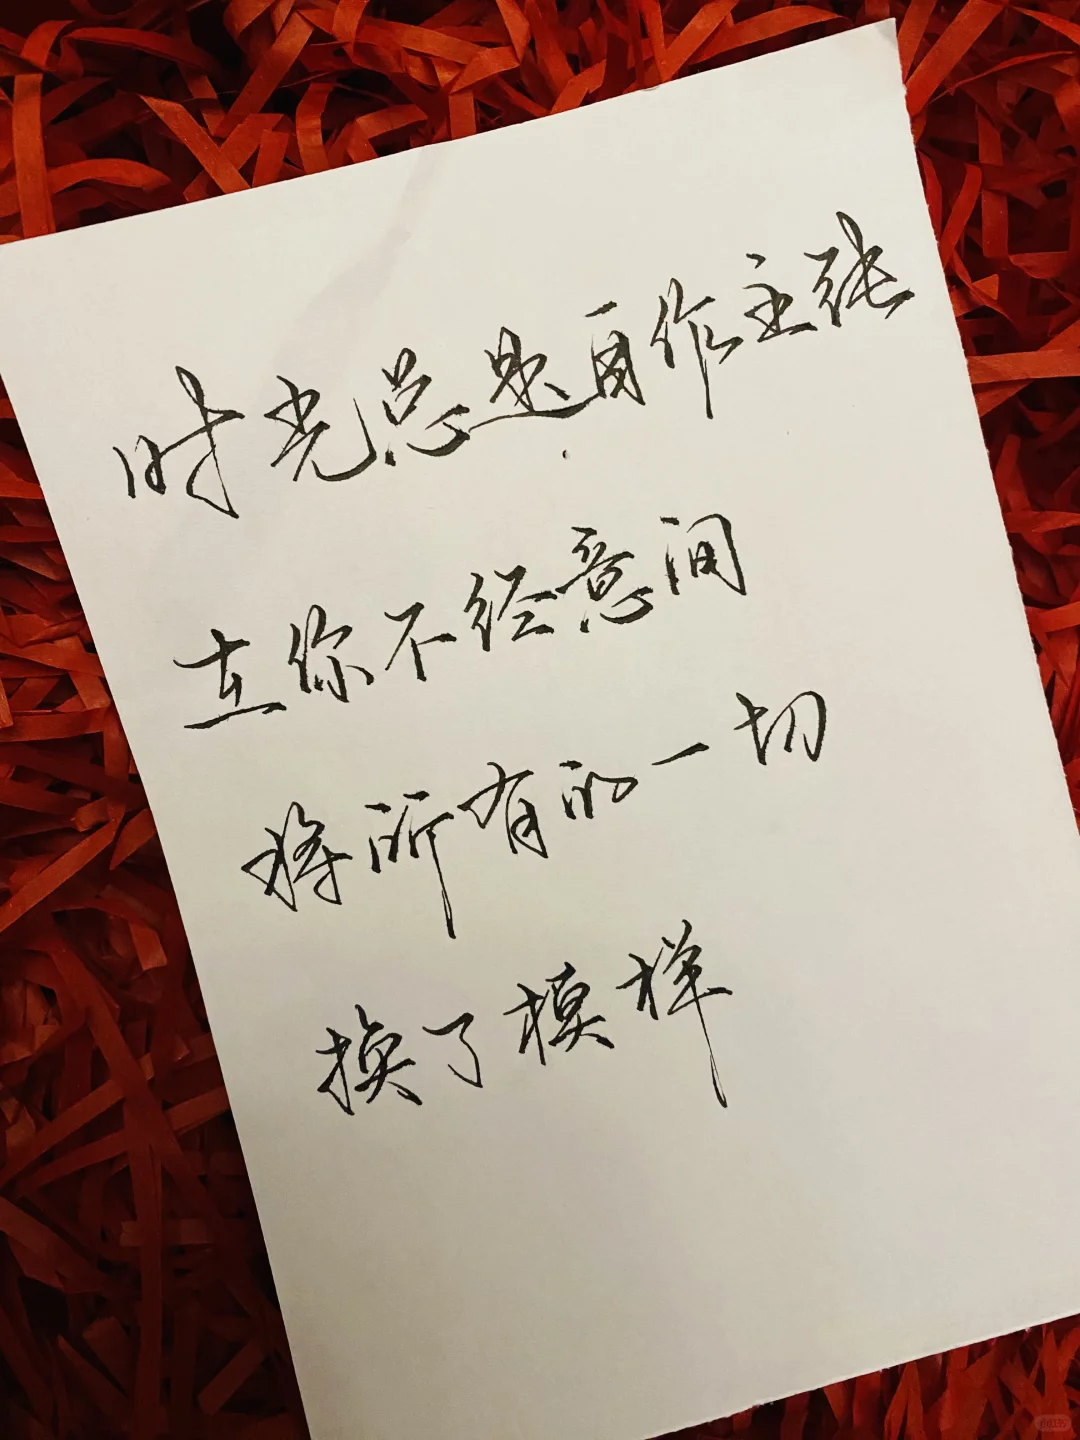 时光总是自作主张
在你不经意间
将所有的一切
换了模样
小红书